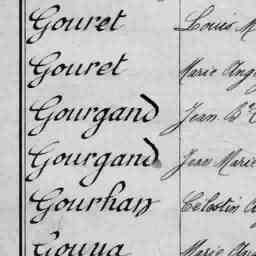 Gouret Louis M
Gouret Marie Ang
Gourgand Jean Bte
Gourgand Jean Marie
Gourhan Célestin
Marie